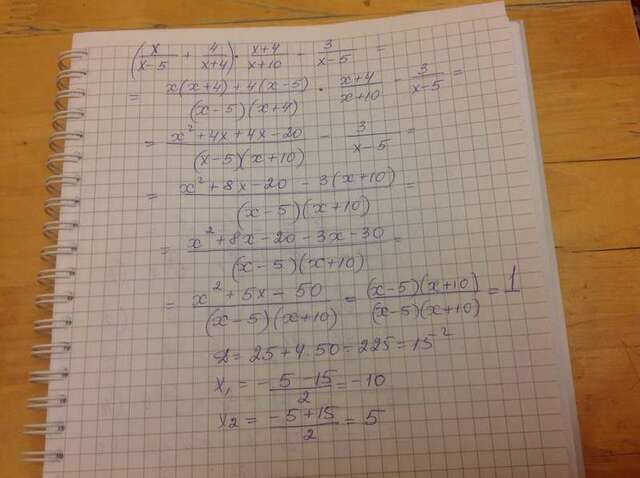 (x/(x-5) + 4/(x+4)) · (x+4)/(x+10) - 3/(x-5) =
= (x(x+4)+4(x-5))/((x-5)(x+4)) · (x+4)/(x+10) - 3/(x-5) =
= (x²+4x+4x-20)/((x-5)(x+10)) - 3/(x-5) =
= (x²+8x-20-3(x+10))/((x-5)(x+10)) =
= (x²+8x-20-3x-30)/((x-5)(x+10)) =
= (x²+5x-50)/((x-5)(x+10)) = ((x-5)(x+10))/((x-5)(x+10)) = 1
D=25+4·50=225=15²
x₁ = (-5-15)/2 = -10
x₂ = (-5+15)/2 = 5